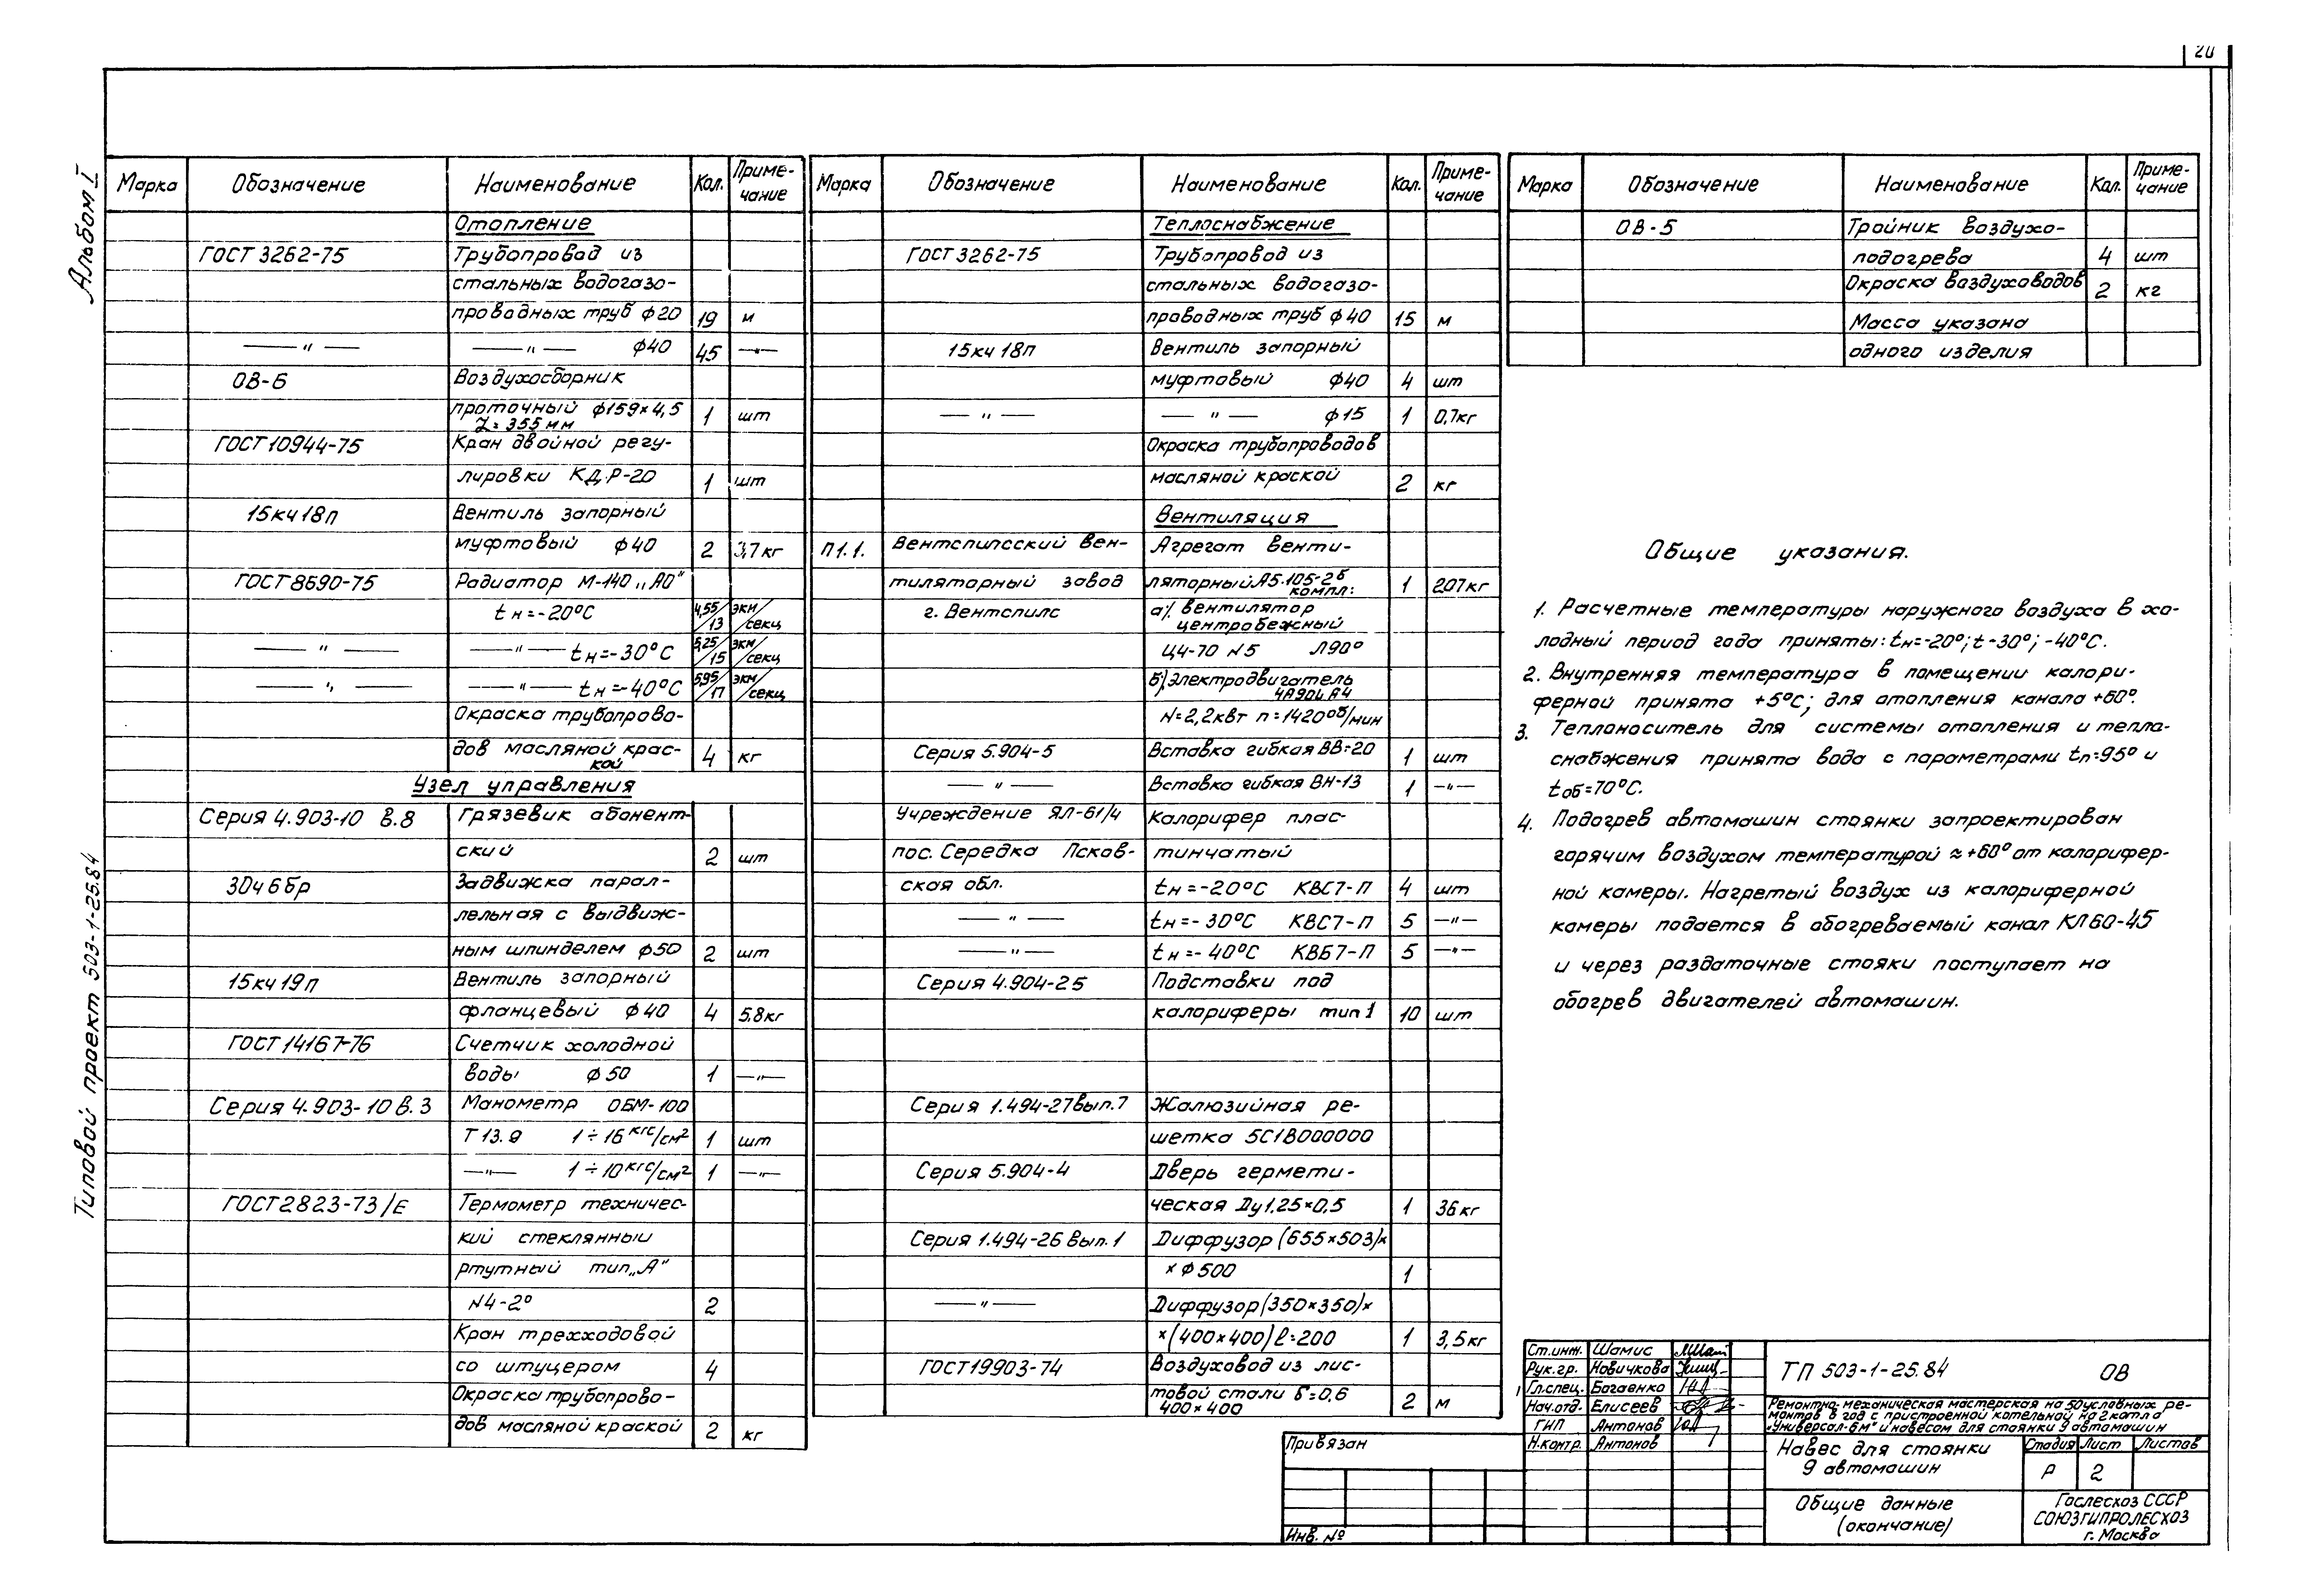 20
Альбом I
Типовой проект 503-1-25.84
Марка Обозначение Наименование Кол. Приме-
чание
Отопление
ГОСТ 3262-75 Трубопровод из
стальных водогазо-
проводных труб ф20 19 м
—"— —"— ф40 45 —"—
ОВ-6 Воздухосборник
проточный ф159×4,5 1 шт
L=355мм
ГОСТ10944-75 Кран двойной регу-
лировки КДР-20 1 шт
15кч18п Вентиль запорный
муфтовый ф40 2 3,7кг
ГОСТ8690-75 Радиатор М-140 „АО"
tн=-20°С 4,55/13 экм/секц
—"— —"— tн=-30°С 5,25/15 экм/секц
—"— —"— tн=-40°С 5,95/17 экм/секц
Окраска трубопрово-
дов масляной крас-
кой 4 кг
Узел управления
Серия 4.903-10 в.8 Грязевик абонент-
ский 2 шт
30ч6бр Задвижка парал-
лельная с выдвиж-
ным шпинделем ф50 2 шт
15кч19п Вентиль запорный
фланцевый ф40 4 5.8кг
ГОСТ14167-76 Счетчик холодной
воды ф50 1 —"—
Серия 4.903-10в.3 Манометр ОБМ-100
Т13.9 1÷16 кгс/см² 1 шт
—"— 1÷10 кгс/см² 1 —"—
ГОСТ2823-73/Е Термометр техничес-
кий стеклянный
ртутный тип„А"
N4-2° 2
Кран трехходовой
со штуцером 4
Окраска трубопрово-
дов масляной краской 2 кг
Марка Обозначение Наименование Кол. Приме-
чание
Теплоснабжение
ГОСТ3262-75 Трубопровод из
стальных водогазо-
проводных труб ф40 15 м
15кч18п Вентиль запорный
муфтовый ф40 4 шт
—"— —"— ф15 1 0,7кг
Окраска трубопроводов
масляной краской 2 кг
Вентиляция
П1.1. Вентспилсский вен- Агрегат венти-
тиляторный завод ляторный А5.105-2б 1 207кг
компл:
г. Вентспилс а) вентилятор
центробежный
Ц4-70 N5 Л90°
б) Электродвигатель
4А90LА4
N=2,2квт n=1420об/мин
Серия 5.904-5 Вставка гибкая ВВ-20 1 шт
—"— Вставка гибкая ВН-13 1 —"—
Учреждение ЯЛ-61/4 Калорифер плас-
пос. Середка Псков- тинчатый
ская обл. tн=-20°С КВС7-П 4 шт
—"— tн=-30°С КВС7-П 5 —"—
—"— tн=-40°С КВБ7-П 5 —"—
Серия 4.904-25 Подставки под
калориферы тип 1 10 шт
Серия 1.494-27вып.7 Жалюзийная ре-
шетка 5С1В000000
Серия 5.904-4 Дверь гермети-
ческая Ду1.25×0,5 1 36кг
Серия 1.494-26 вып.1 Диффузор (655×503)×
×ф500 1
—"— Диффузор(350×350)×
×(400×400) ℓ=200 1 3,5кг
ГОСТ19903-74 Воздуховод из лис-
товой стали б=0,6 2 м
400×400
Марка Обозначение Наименование Кол. Приме-
чание
ОВ-5 Тройник воздухо-
подогрева 4 шт
Окраска воздуховодов 2 кг
Масса указана
одного изделия
Общие указания.
1. Расчетные температуры наружного воздуха в хо-
лодный период года приняты: tн=-20°; t-30°; -40°С.
2. Внутренняя температура в помещении калори-
ферной принята +5°С; для отопления канала +60°.
3. Теплоноситель для системы отопления и тепла-
снабжения принята вода с параметрами tп=95° и
tоб=70°С.
4. Подогрев автомашин стоянки запроектирован
горячим воздухом температурой ≈+60° от калорифер-
ной камеры. Нагретый воздух из калориферной
камеры подается в обогреваемый канал КЛ60-45
и через раздаточные стояки поступает на
обогрев двигателей автомашин.
Ст.инж. Шамис
Рук.гр. Новичкова
Гл.спец. Богаенко
Нач.отд. Елисеев
ГИП Антонов
Н.контр. Антонов
ТП 503-1-25.84 ОВ
Ремонтно-механическая мастерская на 50условных ре-
монтов в год с пристроенной котельной на 2 котла
„Универсал-6м" и навесом для стоянки 9 автомашин
Навес для стоянки
9 автомашин
Стадия Лист Листов
Р 2
Общие данные
(окончание)
Гослесхоз СССР
СОЮЗГИПРОЛЕСХОЗ
г. Москва
Привязан
Инв. №